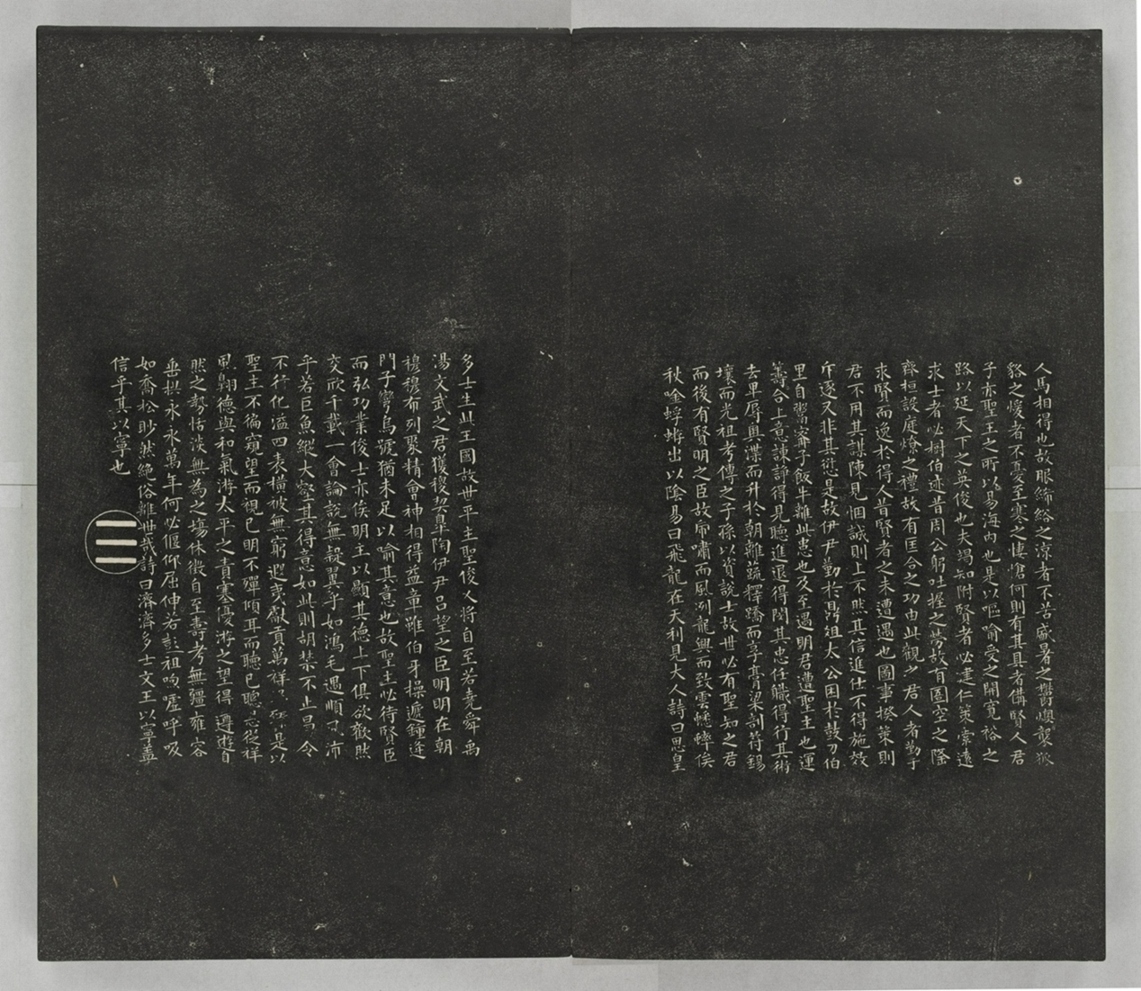 人馬相得也故服絺綌之涼者不苦盛暑之鬱燠襲狐
貉之煖者不憂至寒之悽愴何則有其具者備賢人君
子亦聖王之所以易海內也是以嘔喻受之開寬裕之
路以延天下之英俊也夫竭知附賢者必建仁策索遠
求士者必樹伯迹昔周公躬吐捉之勞故有圄空之隆
齊桓設庭燎之禮故有匡合之功由此觀之君人者勤于
求賢而逸於得人昔賢者之未遭遇也圖事揆策則
君不用其謀陳見悃誠則上不然其信進仕不得施效
斥逐又非其愆是故伊尹勤於鼎俎太公困於鼓刀伯
里自鬻甯子飯牛離此患也及至遇明君遭聖主也運
籌合上意諫諍得見聽進退得關其忠任職得行其術
去卑辱奧渫而升於朝離蔬釋蹻而享膏粱剖符錫
壤而光祖考傳之子孫以資說士故世必有聖知之君
而後有賢明之臣故虎嘯而風冽龍興而致雲蟋蟀俟
秋唫蜉蝣出以陰易曰飛龍在天利見大人詩曰思皇
多士生此王國故世平主聖俊乂將自至若堯舜禹
湯文武之君獲稷契皋陶伊尹呂望之臣明明在朝
穆穆布列聚精會神相得益章雖伯牙操遞鍾逢
門子彎烏號猶未足以喻其意也故聖主必待賢臣
而弘功業俊士亦俟明主以顯其德上下俱欲歡然
交欣千載一會論說無疑翼乎如鴻毛遇順風沛
乎若巨魚縱大壑其得意如此則胡禁不止曷令
不行化溢四表橫被無窮遐夷獻貢萬祥是以
聖主不徧窺望而視已明不殫傾耳而聽已聰恩從祥
風翱德與和氣游太平之責塞優游之望得遵遊自
然之勢恬淡無為之場休徵自至壽考無疆雍容
垂拱永永萬年何必偃仰屈伸若彭祖呴噓呼吸
如喬松眇然絕俗離世哉詩曰濟濟多士文王以寧蓋
信乎其以寧也